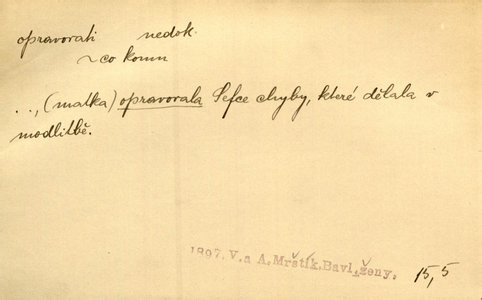 opravovati nedok.
~ co komu
..., (matka) opravovala Sefce chyby, které dělala v
modlitbě.
1897. V. a A. Mrštík. Bavl. ženy. 15,5